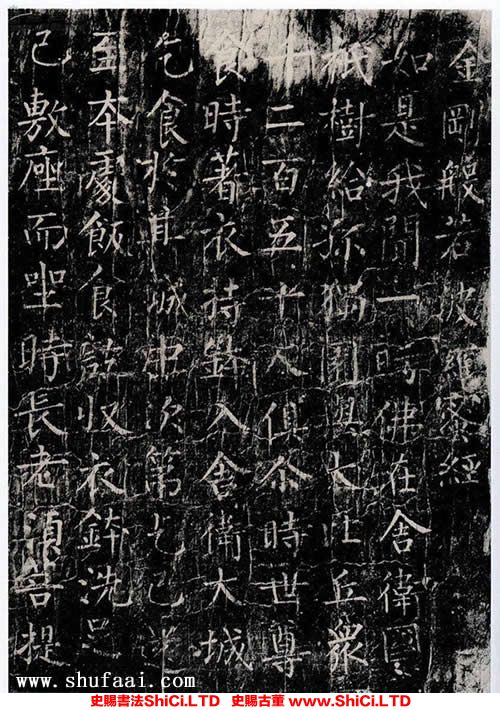 金剛般若波羅蜜經
如是我聞一時佛在舍衛國
祇樹給孤獨園與大比丘衆
千二百五十人俱尒時世尊
食時著衣持鉢入舍衛大城
乞食於其城中次第乞已還
至本處飯食訖収衣鉢洗足
已敷座而坐時長老須菩提
www.shufaai.com
史賜書法ShiCi.LTD 史賜古董 www.ShiCi.LTD